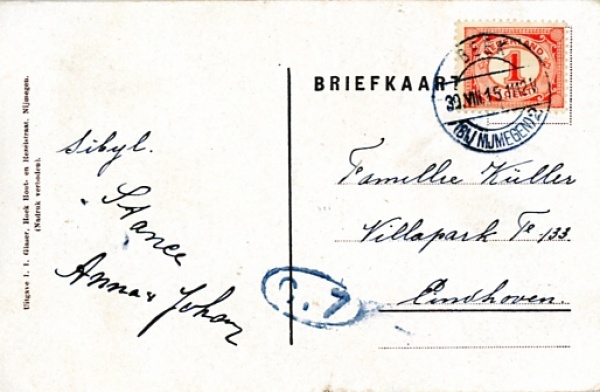 Uitgave I. I. Glaser, Hoek Hout- en Hezelstraat, Nijmegen.
(Nadruk verboden).
Sibyl.
Stance
Anna & Johan
BRIEFKAART
NEDERLAND
1
BEEK
30.VIII.15.1112V
(BIJ NIJMEGEN) 2
Familie Küller
Villapark Te 133
Eindhoven.